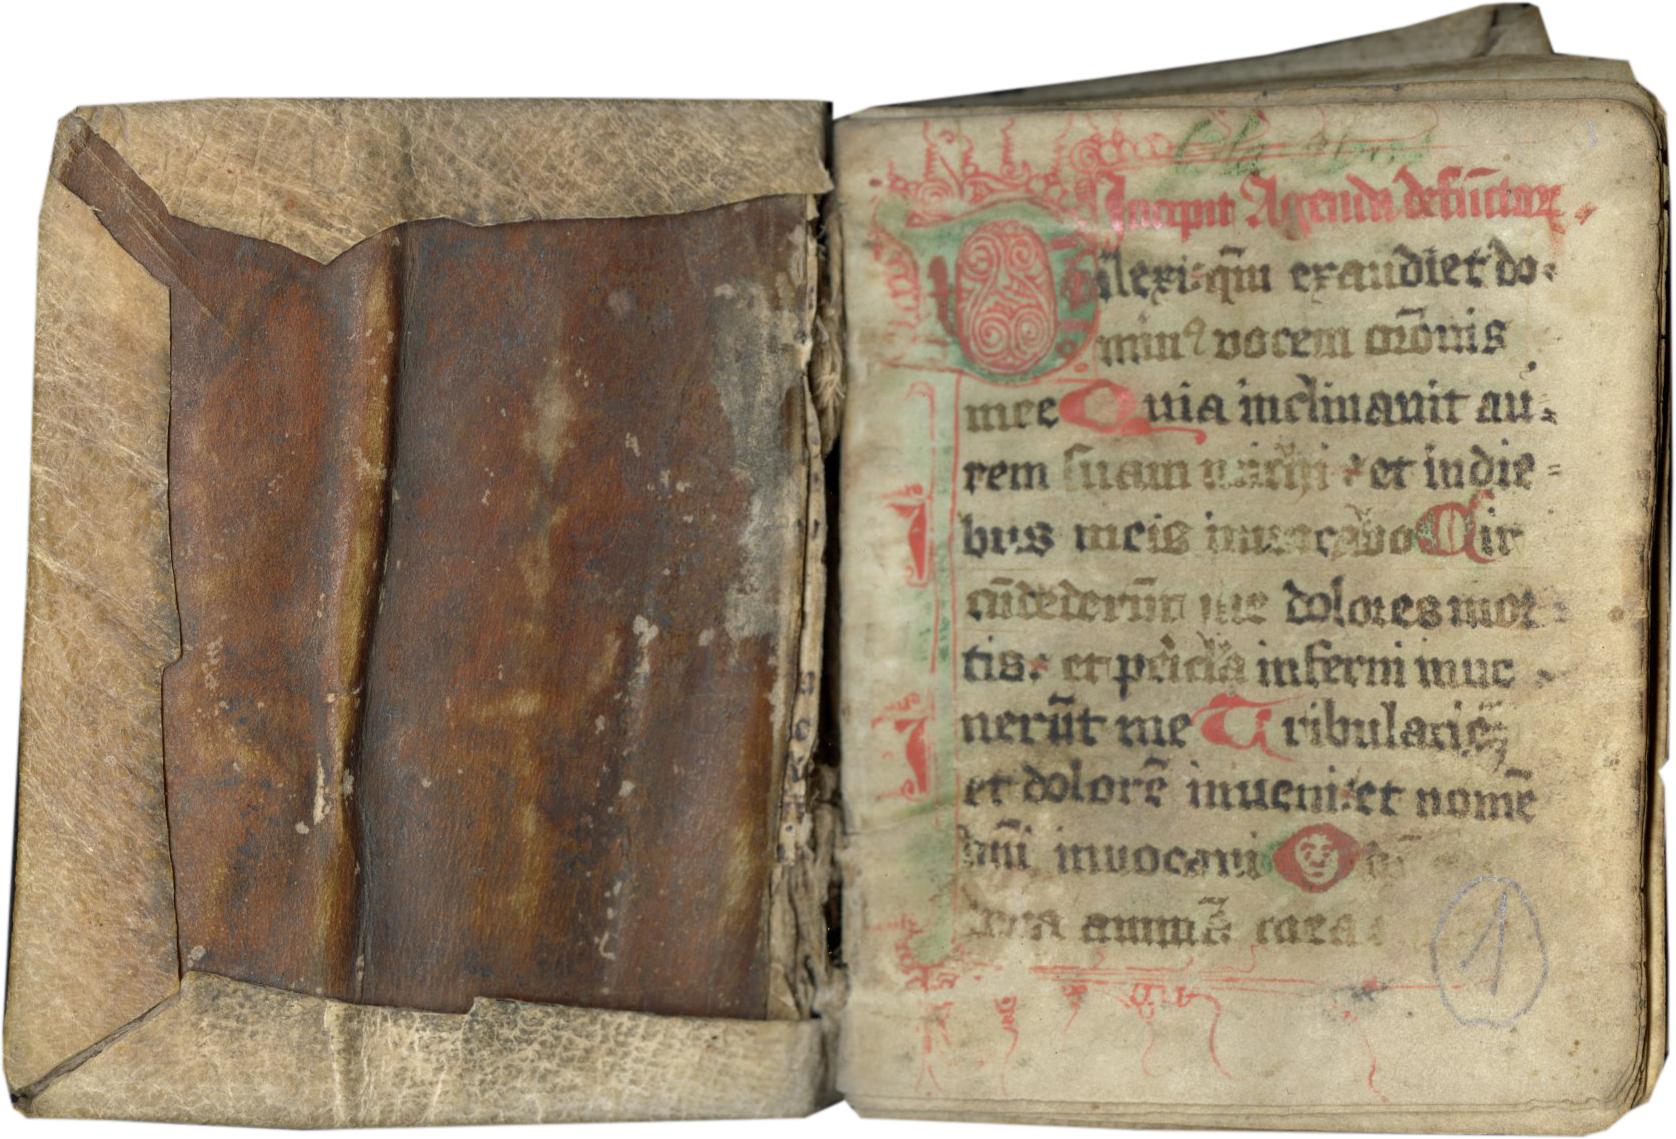 Incipit Agenda defūctorꝝ
Dilexi qm̄ exaudiet do
minꝰ vocem or̄onis
mee Quia inclinauit au
rem suam michi et in die
bus meis inuocabo Cir
cūdederūt me dolores mor
tis et pericl̄a inferni inue
nerūt me Tribulacōeʒ
et dolorē inueni et nomē
dn̄i inuocaui O
animā
1